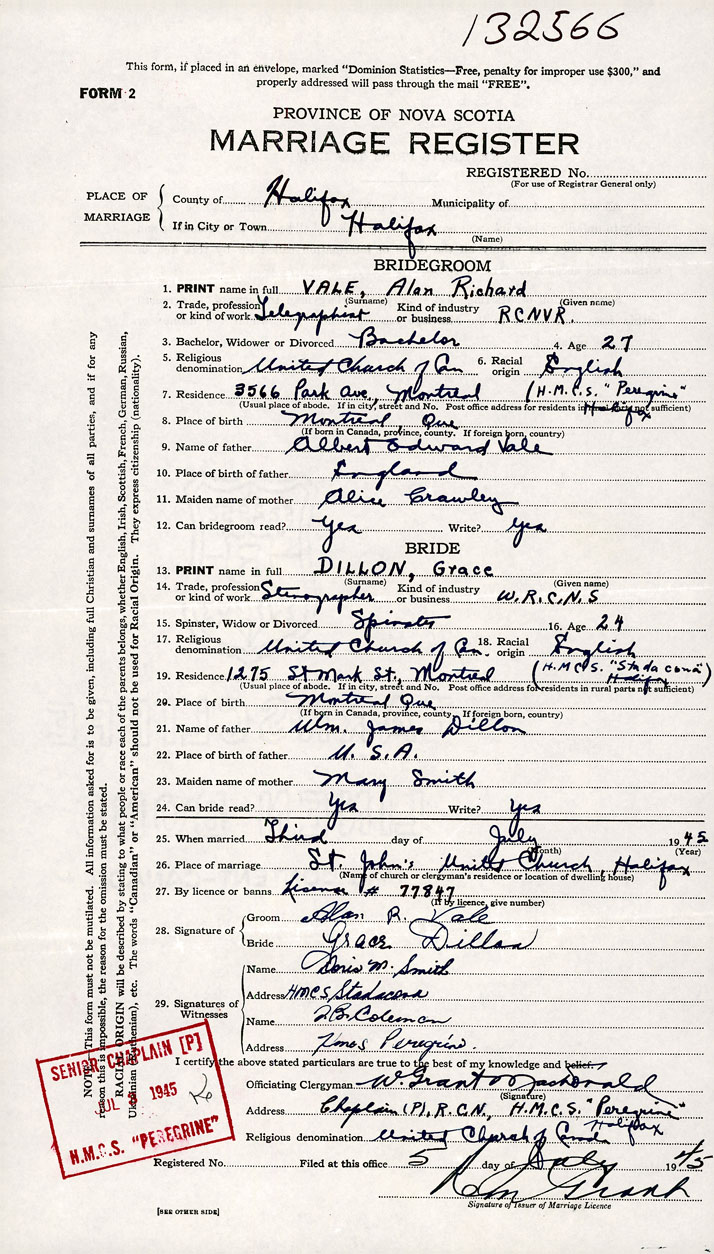 132566
This form, if placed in an envelope, marked "Dominion Statistics—Free, penalty for improper use $300," and
properly addressed will pass through the mail "FREE".
FORM 2
PROVINCE OF NOVA SCOTIA
MARRIAGE REGISTER
REGISTERED No.
(For use of Registrar General only)
PLACE OF MARRIAGE
County of Halifax Municipality of
If in City or Town Halifax
(Name)
BRIDEGROOM
1. PRINT name in full VALE, Alan Richard
(Surname) (Given name)
2. Trade, profession or kind of work Telegraphist Kind of industry or business RCNVR.
3. Bachelor, Widower or Divorced Bachelor 4. Age 27
5. Religious denomination United Church of Can 6. Racial origin English
7. Residence 3566 Park Ave, Montreal (H.M.C.S. "Peregrine" Halifax
(Usual place of abode. If in city, street and No. Post office address for residents in rural parts not sufficient)
8. Place of birth Montreal Que
(If born in Canada, province, county. If foreign born, country)
9. Name of father Albert Edward Vale
10. Place of birth of father England
11. Maiden name of mother Alice Crawley
12. Can bridegroom read? Yes Write? Yes
BRIDE
13. PRINT name in full DILLON, Grace
(Surname) (Given name)
14. Trade, profession or kind of work Stenographer Kind of industry or business W.R.C.N.S
15. Spinster, Widow or Divorced Spinster 16. Age 24
17. Religious denomination United Church of Can. 18. Racial origin English
19. Residence 1275 St Mark St., Montreal (H.M.C.S. "Stadacona") Halifax
(Usual place of abode. If in city, street and No. Post office address for residents in rural parts not sufficient)
20. Place of birth Montreal Que
(If born in Canada, province, county. If foreign born, country)
21. Name of father Wm. James Dillon
22. Place of birth of father U.S.A.
23. Maiden name of mother Mary Smith
24. Can bride read? Yes Write? Yes
25. When married Third day of July 1945
(Month) (Year)
26. Place of marriage St. John's United Church Halifax
(Name of church or clergyman's residence or location of dwelling house)
27. By licence or banns License # 77847
(If by licence, give number)
28. Signature of
Groom Alan R. Vale
Bride Grace Dillon
29. Signatures of Witnesses
Name Doris M. Smith
Address HMCS Stadacona
Name Coleman
Address Hmcs Peregrine.
I certify the above stated particulars are true to the best of my knowledge and belief.
Officiating Clergyman W. Grant MacDonald
(Signature)
Address Chaplain (P), R.C.N., H.M.C.S. "Peregrine" Halifax
Religious denomination United Church of Canada
Registered No. Filed at this office 5 day of July 1945
Grant
Signature of Issuer of Marriage Licence
[SEE OTHER SIDE]
NOTE: This form must not be mutilated. All information asked for is to be given, including full Christian and surnames of all parties, and if for any
reason this is impossible, the reason for the omission must be stated.
RACIAL ORIGIN will be described by stating to what people or race each of the parents belongs, whether English, Irish, Scottish, French, German, Russian,
Ukrainian (Ruthenian), etc. The words "Canadian" or "American" should not be used for Racial Origin. They express citizenship (nationality).
SENIOR CHAPLAIN [P]
JUL 1945
H.M.C.S. "PEREGRINE"